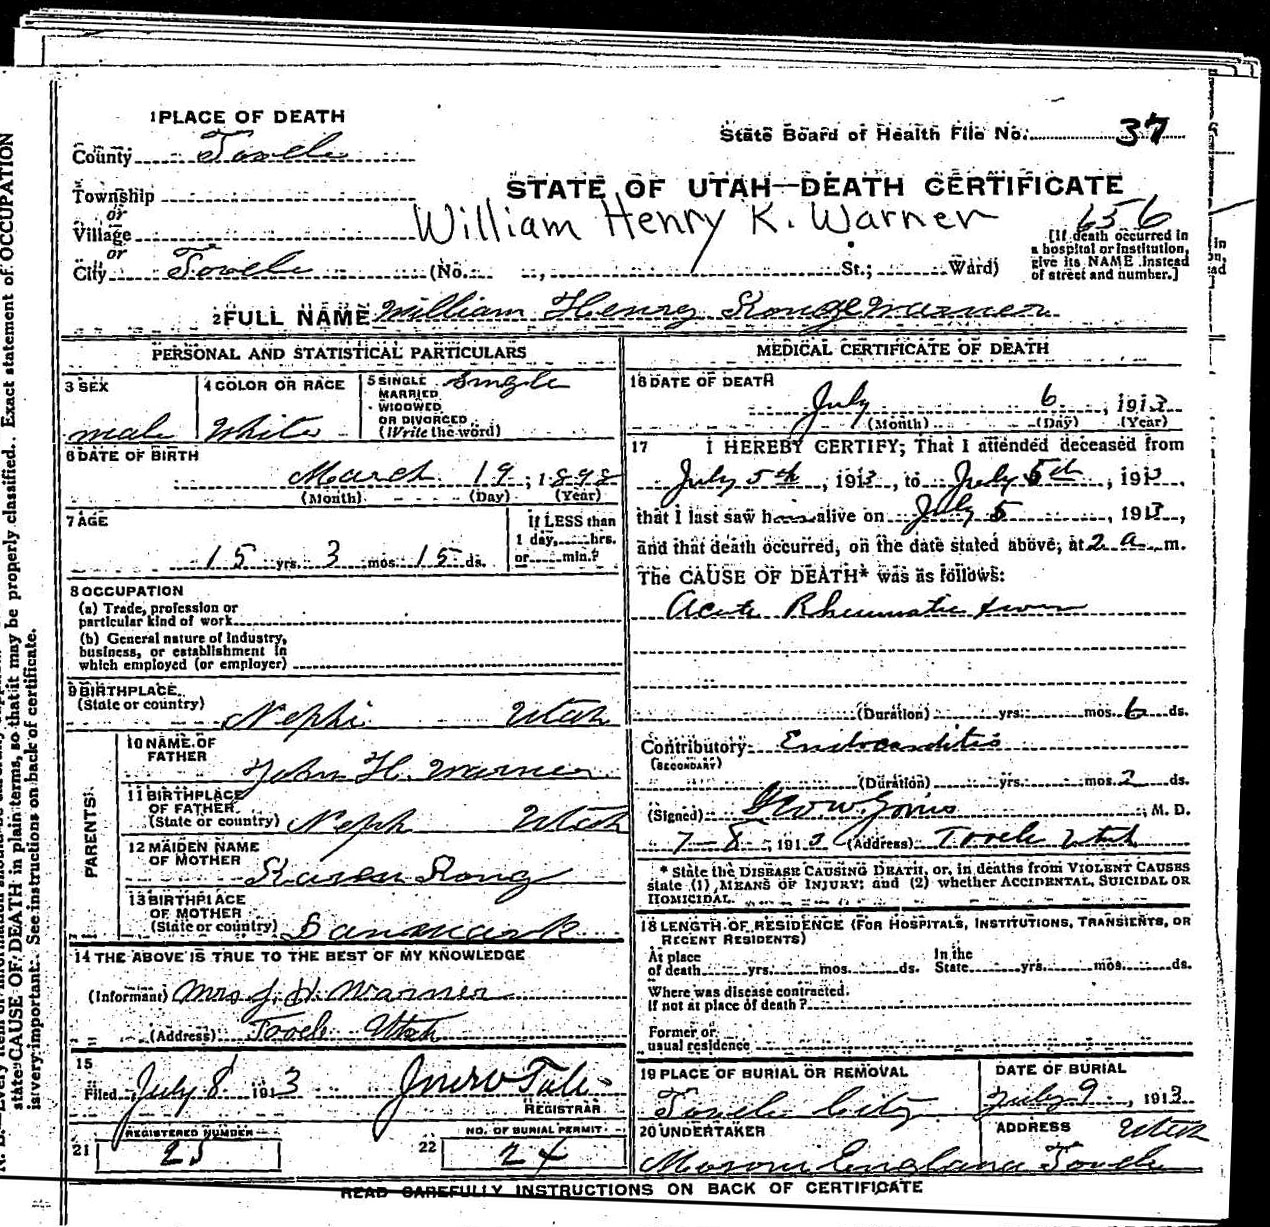 1 PLACE OF DEATH
County Tooele
State Board of Health File No. 37
Township
or
Village
or
City Tooele (No. , St.; Ward)
STATE OF UTAH—DEATH CERTIFICATE
William Henry K. Warner
656
[If death occurred in
a hospital or institution,
give its NAME instead
of street and number.]
2 FULL NAME William Henry Kongg Warner
PERSONAL AND STATISTICAL PARTICULARS
3 SEX
male
4 COLOR OR RACE
White
5 SINGLE
MARRIED
WIDOWED
OR DIVORCED
(Write the word)
Single
6 DATE OF BIRTH
March 19, 1898
(Month) (Day) (Year)
7 AGE
15 yrs. 3 mos. 15 ds.
If LESS than
1 day, hrs.
or min.?
8 OCCUPATION
(a) Trade, profession or
particular kind of work
(b) General nature of Industry,
business, or establishment in
which employed (or employer)
9 BIRTHPLACE
(State or country)
Nephi Utah
PARENTS
10 NAME OF
FATHER
John H. Warner
11 BIRTHPLACE
OF FATHER
(State or country) Neph Utah
12 MAIDEN NAME
OF MOTHER
Karen Kong
13 BIRTHPLACE
OF MOTHER
(State or country) Danmark
14 THE ABOVE IS TRUE TO THE BEST OF MY KNOWLEDGE
(Informant) Mrs J. H. Warner
(Address) Tooele Utah
15
Filed July 8 1913
REGISTRAR
21 REGISTERED NUMBER
25
22 NO. OF BURIAL PERMIT
24
MEDICAL CERTIFICATE OF DEATH
16 DATE OF DEATH
July 6, 1913
(Month) (Day) (Year)
17 I HEREBY CERTIFY; That I attended deceased from
July 5th, 1913, to July 5th, 1913,
that I last saw him alive on July 5, 1913,
and that death occurred, on the date stated above, at 2 a. m.
The CAUSE OF DEATH* was as follows:
Acute Rheumatic fever
(Duration) yrs. mos. 6 ds.
Contributory Endocarditis
(SECONDARY)
(Duration) yrs. mos. 2 ds.
(Signed) M. D.
7-8-, 1913 (Address) Tooele Utah
* State the DISEASE CAUSING DEATH, or, in deaths from VIOLENT CAUSES
state (1) MEANS OF INJURY; and (2) whether ACCIDENTAL, SUICIDAL OR
HOMICIDAL.
18 LENGTH OF RESIDENCE (FOR HOSPITALS, INSTITUTIONS, TRANSIENTS, OR
RECENT RESIDENTS)
At place
of death yrs. mos. ds.
In the
State yrs. mos. ds.
Where was disease contracted.
If not at place of death?
Former or
usual residence
19 PLACE OF BURIAL OR REMOVAL
Tooele City
DATE OF BURIAL
July 9, 1913
20 UNDERTAKER
Moroni England
ADDRESS
Tooele Utah
READ CAREFULLY INSTRUCTIONS ON BACK OF CERTIFICATE
state CAUSE OF DEATH in plain terms, so that it may be properly classified. Exact statement of OCCUPATION
is very important. See instructions on back of certificate.